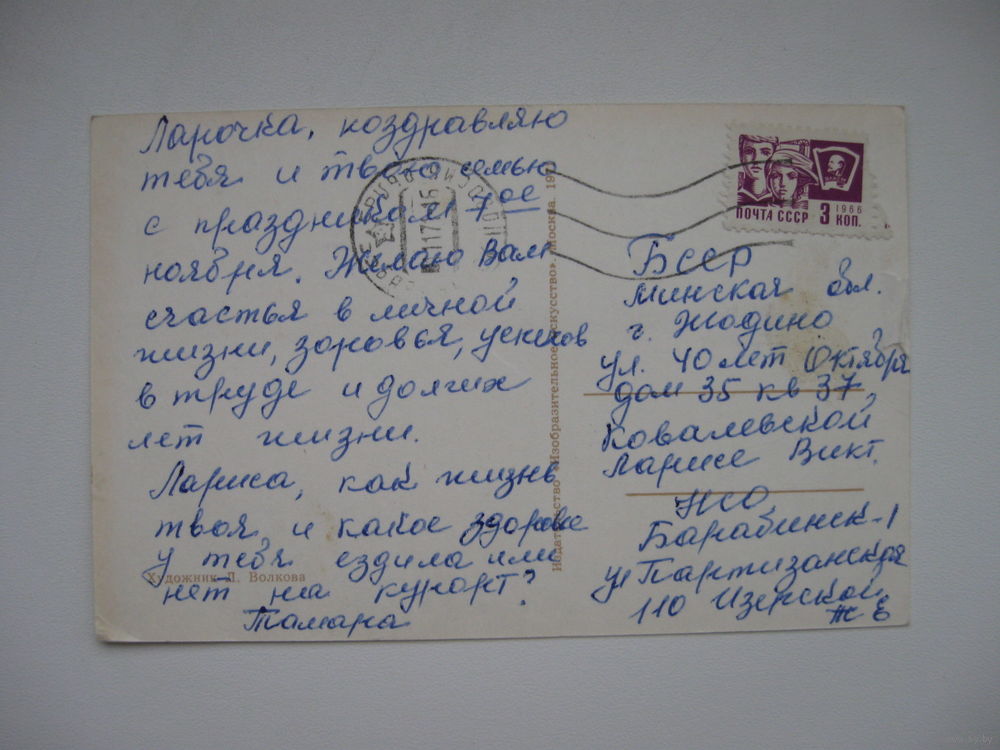 Ларочка, поздравляю
тебя и твою семью
с праздником 7ое
ноября. Желаю Вам
счастья в личной
жизни, зоровья, успехов
в труде и долгих
лет жизни.
Лариса, как жизнь
твоя, и какое здоровье
у тебя ездила или
нет на курорт?
Тамара
Художник Л. Волкова
Издательство «Изобразительное искусство». Москва.
ПОЧТА СССР 3 КОП.
1966
БССР
Минская обл.
г. Жодино
ул. 40 лет Октября
дом 35 кв 37
Ковалевской
Ларисе Викт.
НСО
Барабинск-1
ул Партизанская
110 Изерской
Т Е